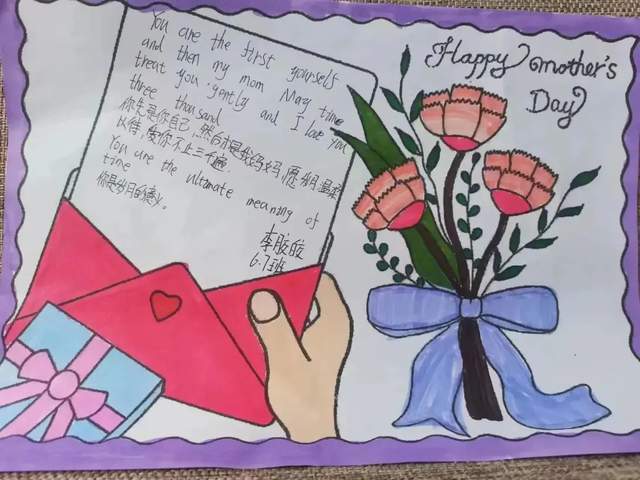 You are the first yourself
and then my mom May time
treat you gently and I love you
three thousand
你先是你自己,然后才是我妈妈,愿时温柔
以待,爱你不止三千遍.
You are the ultimate meaning of
time
你是岁月的意义。
李胶皎
6.7班
Happy mother's
Day